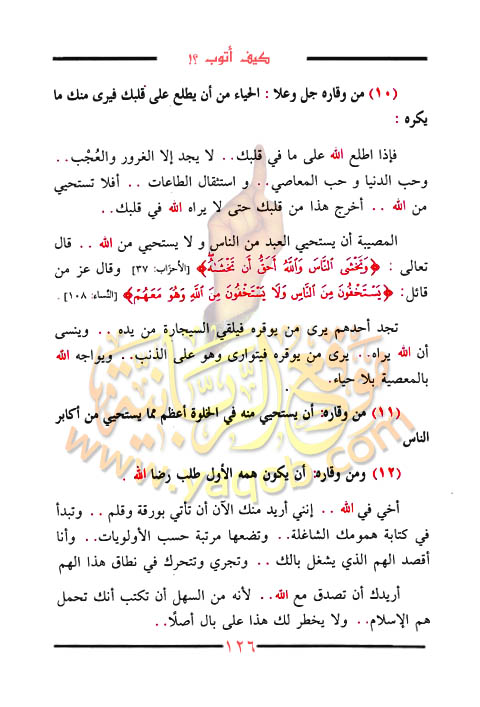 كيف أتوب ؟!
(١٠) من وقاره جل وعلا : الحياء من أن يطلع على قلبك فيرى منك ما
يكره :
فإذا اطلع الله على ما في قلبك.. لا يجد إلا الغرور والعُجْب..
وحب الدنيا و حب المعاصي.. و استثقال الطاعات .. أفلا تستحيي
من الله .. أخرج هذا من قلبك حتى لا يراه الله في قلبك..
المصيبة أن يستحيي العبد من الناس و لا يستحيي من الله .. قال
تعالى : ﴿وَتَخْشَى النَّاسَ وَاللَّهُ أَحَقُّ أَن تَخْشَاهُ﴾ [الأحزاب: ٣٧] وقال عز من
قائل: ﴿يَسْتَخْفُونَ مِنَ النَّاسِ وَلَا يَسْتَخْفُونَ مِنَ اللَّهِ وَهُوَ مَعَهُمْ﴾ [النساء: ١٠٨] .
تجد أحدهم يرى من يوقره فيلقي السيجارة من يده .. وينسى
أن الله يراه.. يرى من يوقره فيتوارى وهو على الذنب.. ويواجه الله
بالمعصية بلا حياء.
(١١) من وقاره: أن يستحيي منه في الخلوة أعظم مما يستحيي من أكابر
الناس
(١٢) ومن وقاره: أن يكون همه الأول طلب رضا الله .
أخي في الله .. إنني أريد منك الآن أن تأتي بورقة وقلم .. وتبدأ
في كتابة همومك الشاغلة.. وتضعها مرتبة حسب الأولويات.. وأنا
أقصد الهم الذي يشغل بالك .. وتجري وتتحرك في نطاق هذا الهم
أريدك أن تصدق مع الله.. لأنه من السهل أن تكتب أنك تحمل
هم الإسلام.. ولا يخطر لك هذا على بال أصلًا..
١٢٦
موقع الربانية
www.yaqob.com